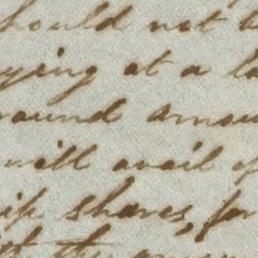 should not b
ying at a la
round amou
will avail of
ip shares, for